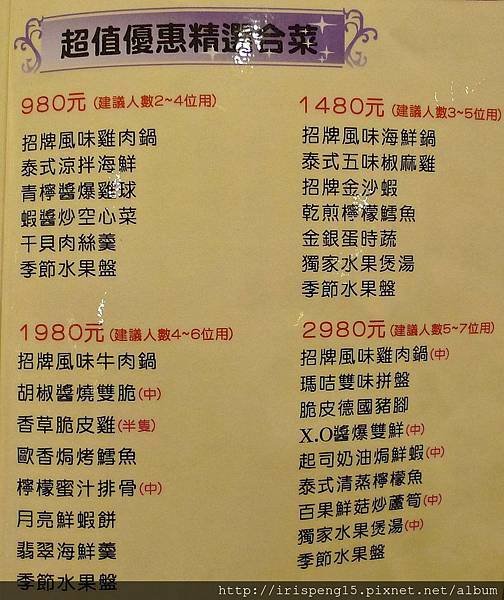 超值優惠精選合菜
980元(建議人數2~4位用)
招牌風味雞肉鍋
泰式涼拌海鮮
青檸醬爆雞球
蝦醬炒空心菜
干貝肉絲羹
季節水果盤
1480元(建議人數3~5位用)
招牌風味海鮮鍋
泰式五味椒麻雞
招牌金沙蝦
乾煎檸檬鱈魚
金銀蛋時蔬
獨家水果煲湯
季節水果盤
1980元(建議人數4~6位用)
招牌風味牛肉鍋
胡椒醬燒雙脆(中)
香草脆皮雞(半隻)
歐香焗烤鱈魚
檸檬蜜汁排骨(中)
月亮鮮蝦餅
翡翠海鮮羹
季節水果盤
2980元(建議人數5~7位用)
招牌風味雞肉鍋(中)
瑪咭雙味拼盤
脆皮德國豬腳
X.O醬爆雙鮮(中)
起司奶油焗鮮蝦(中)
泰式清蒸檸檬魚
百果鮮菇炒蘆筍(中)
獨家水果煲湯(中)
季節水果盤
http://irispeng15.pixnet.net/album